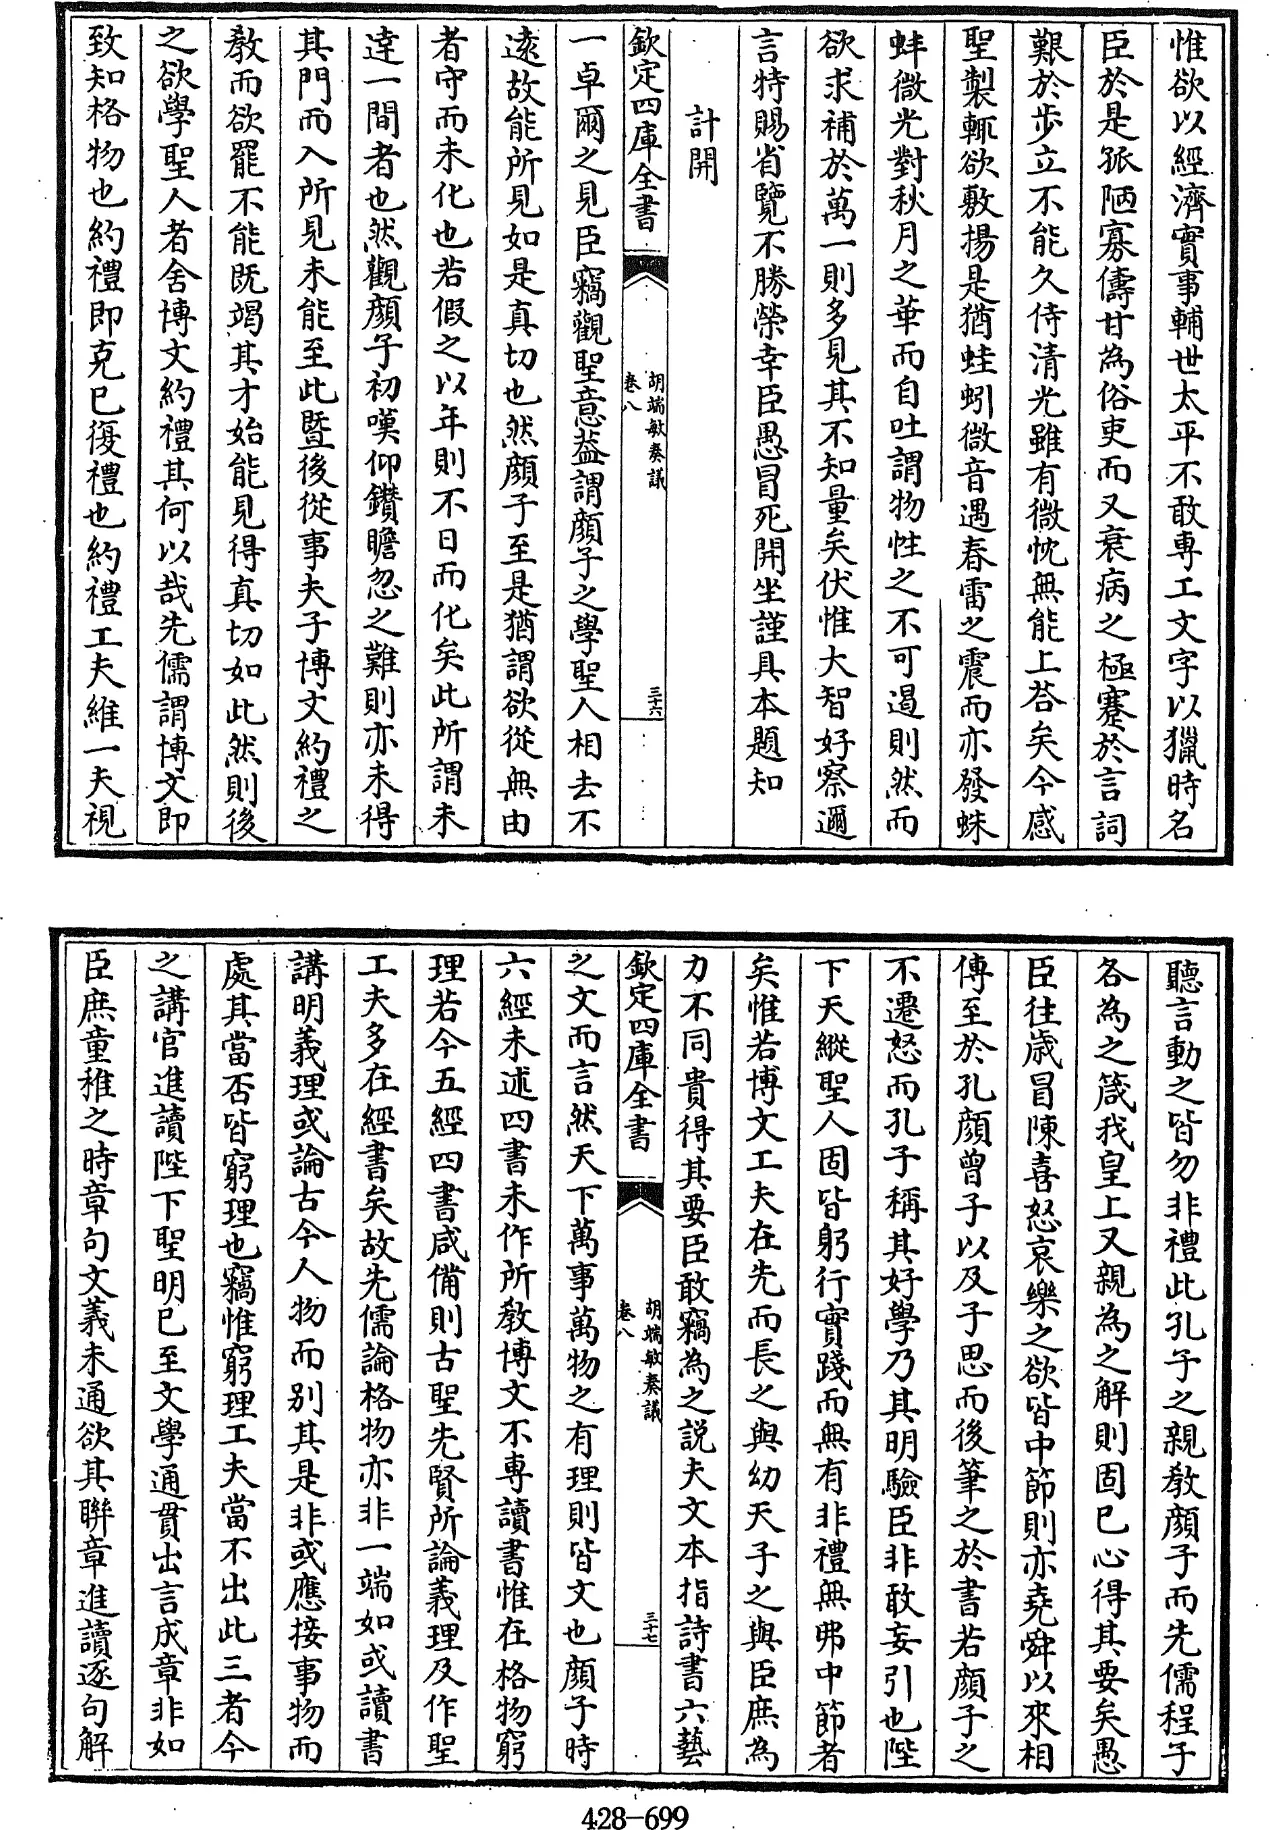 惟欲以經濟實事輔世太平不敢專工文字以獵時名
臣於是孤陋寡儔甘為俗吏而又衰病之極蹇於言詞
艱於步立不能久侍清光雖有微忱無能上荅矣今感
聖製輒欲敷揚是猶蛙蚓微音遇春雷之震而亦發蛛
蚌微光對秋月之華而自吐謂物性之不可遏則然而
欲求補於萬一則多見其不知量矣伏惟大智好察邇
言特賜省覽不勝榮幸臣愚冒死開坐謹具本題知
計開
欽定四庫全書
胡端敏奏議
卷八
三十六
一卓爾之見臣竊觀聖意葢謂顔子之學聖人相去不
逺故能所見如是真切也然顔子至是猶謂欲從無由
者守而未化也若假之以年則不日而化矣此所謂未
逹一間者也然觀顔子初嘆仰鑽瞻忽之難則亦未得
其門而入所見未能至此暨後從事夫子博文約禮之
教而欲罷不能既竭其才始能見得真切如此然則後
之欲學聖人者舍博文約禮其何以哉先儒謂博文即
致知格物也約禮即克已復禮也約禮工夫維一夫視
聽言動之皆勿非禮此孔子之親教顔子而先儒程子
各為之箴我皇上又親為之解則固已心得其要矣愚
臣往歳冒陳喜怒哀樂之欲皆中節則亦堯舜以來相
傳至於孔顔曾子以及子思而後筆之於書若顔子之
不遷怒而孔子稱其好學乃其明驗臣非敢妄引也陛
下天縱聖人固皆躬行實踐而無有非禮無弗中節者
矣惟若博文工夫在先而長之與幼天子之與臣庶為
力不同貴得其要臣敢竊為之説夫文本指詩書六藝
欽定四庫全書
胡端敏奏議
卷八
三十七
之文而言然天下萬事萬物之有理則皆文也顔子時
六經未述四書未作所教博文不專讀書惟在格物窮
理若今五經四書咸備則古聖先賢所論義理及作聖
工夫多在經書矣故先儒論格物亦非一端如或讀書
講明義理或論古今人物而别其是非或應接事物而
處其當否皆窮理也竊惟窮理工夫當不出此三者今
之講官進讀陛下聖明已至文學通貫出言成章非如
臣庶童稚之時章句文義未通欲其聨章進讀逐句解
428-699